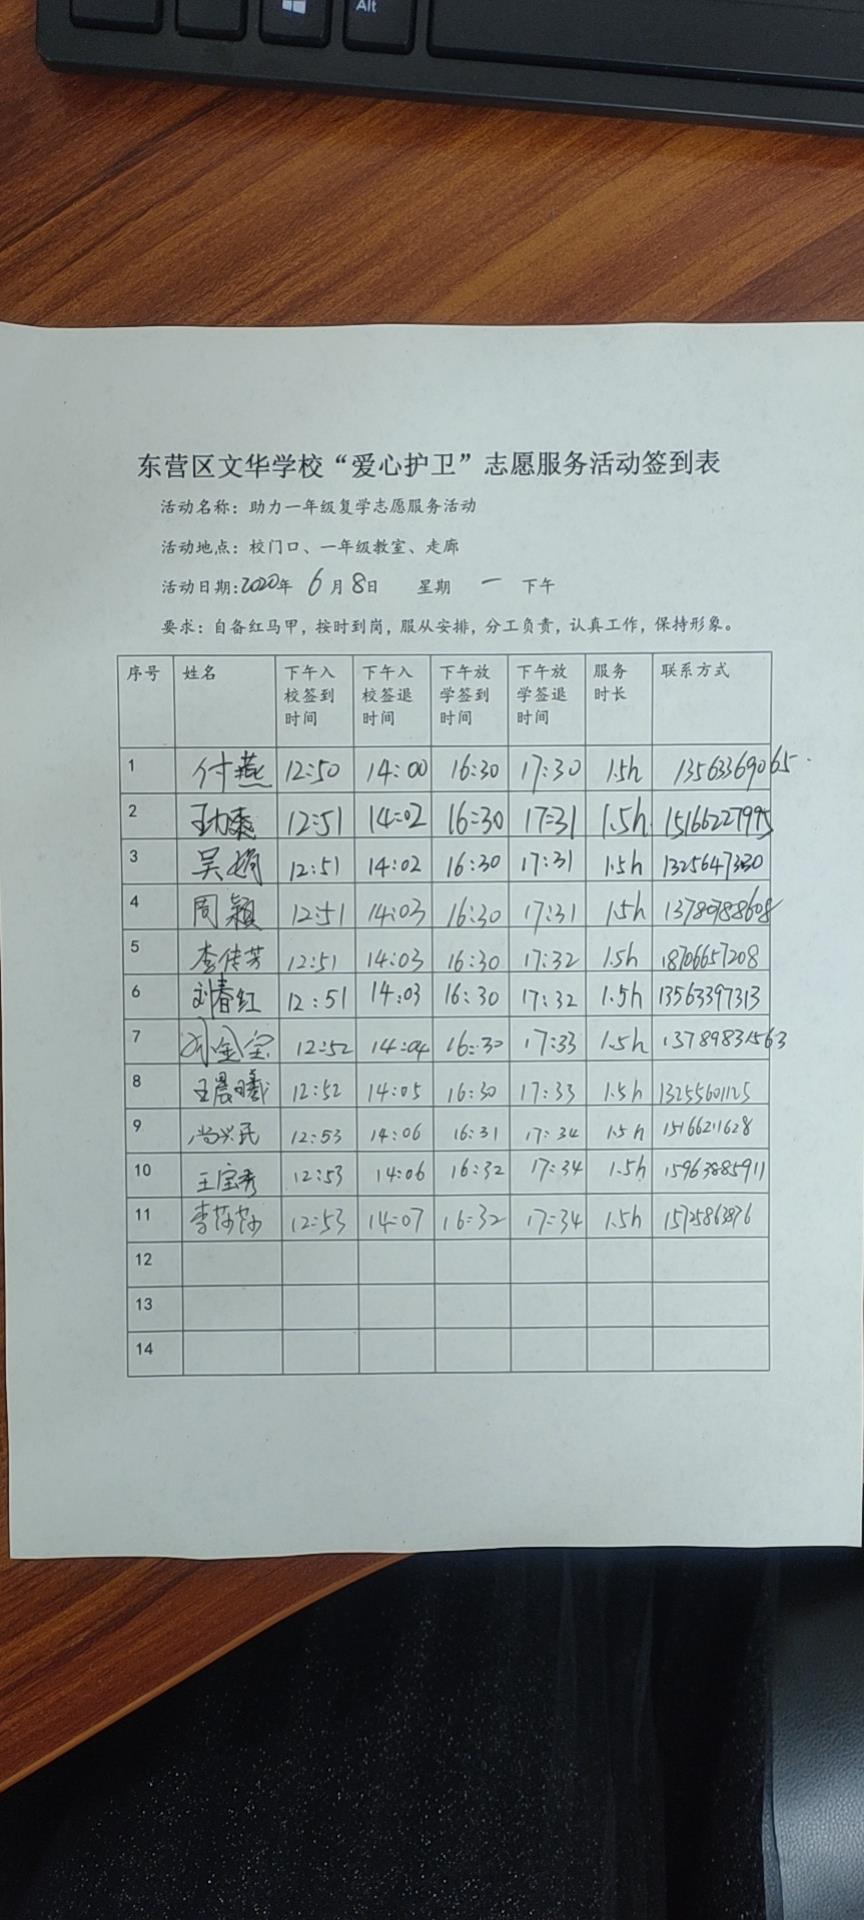 Alt
东营区文华学校“爱心护卫”志愿服务活动签到表
活动名称：助力一年级复学志愿服务活动
活动地点：校门口、一年级教室、走廊
活动日期:2020年 6月8日 星期 一 下午
要求：自备红马甲，按时到岗，服从安排，分工负责，认真工作，保持形象。
序号 姓名 下午入校签到时间 下午入校签退时间 下午放学签到时间 下午放学签退时间 服务时长 联系方式
1 付燕 12:50 14:00 16:30 17:30 1.5h 13563369065
2 12:51 14:02 16:30 17:31 1.5h 15166227995
3 吴娟 12:51 14:02 16:30 17:31 1.5h
4 周颖 12:51 14:03 16:30 17:31 1.5h 13780788608
5 李传芳 12:51 14:03 16:30 17:32 1.5h 18706657208
6 刘春红 12:51 14:03 16:30 17:32 1.5h 13563397313
7 孙金宝 12:52 14:04 16:30 17:33 1.5h 13789831563
8 王晨曦 12:52 14:05 16:30 17:33 1.5h 13255601125
9 尚兴民 12:53 14:06 16:31 17:34 1.5h 15166211628
10 王宝秀 12:53 14:06 16:32 17:34 1.5h 15963885911
11 李莎莎 12:53 14:07 16:32 17:34 1.5h
12
13
14